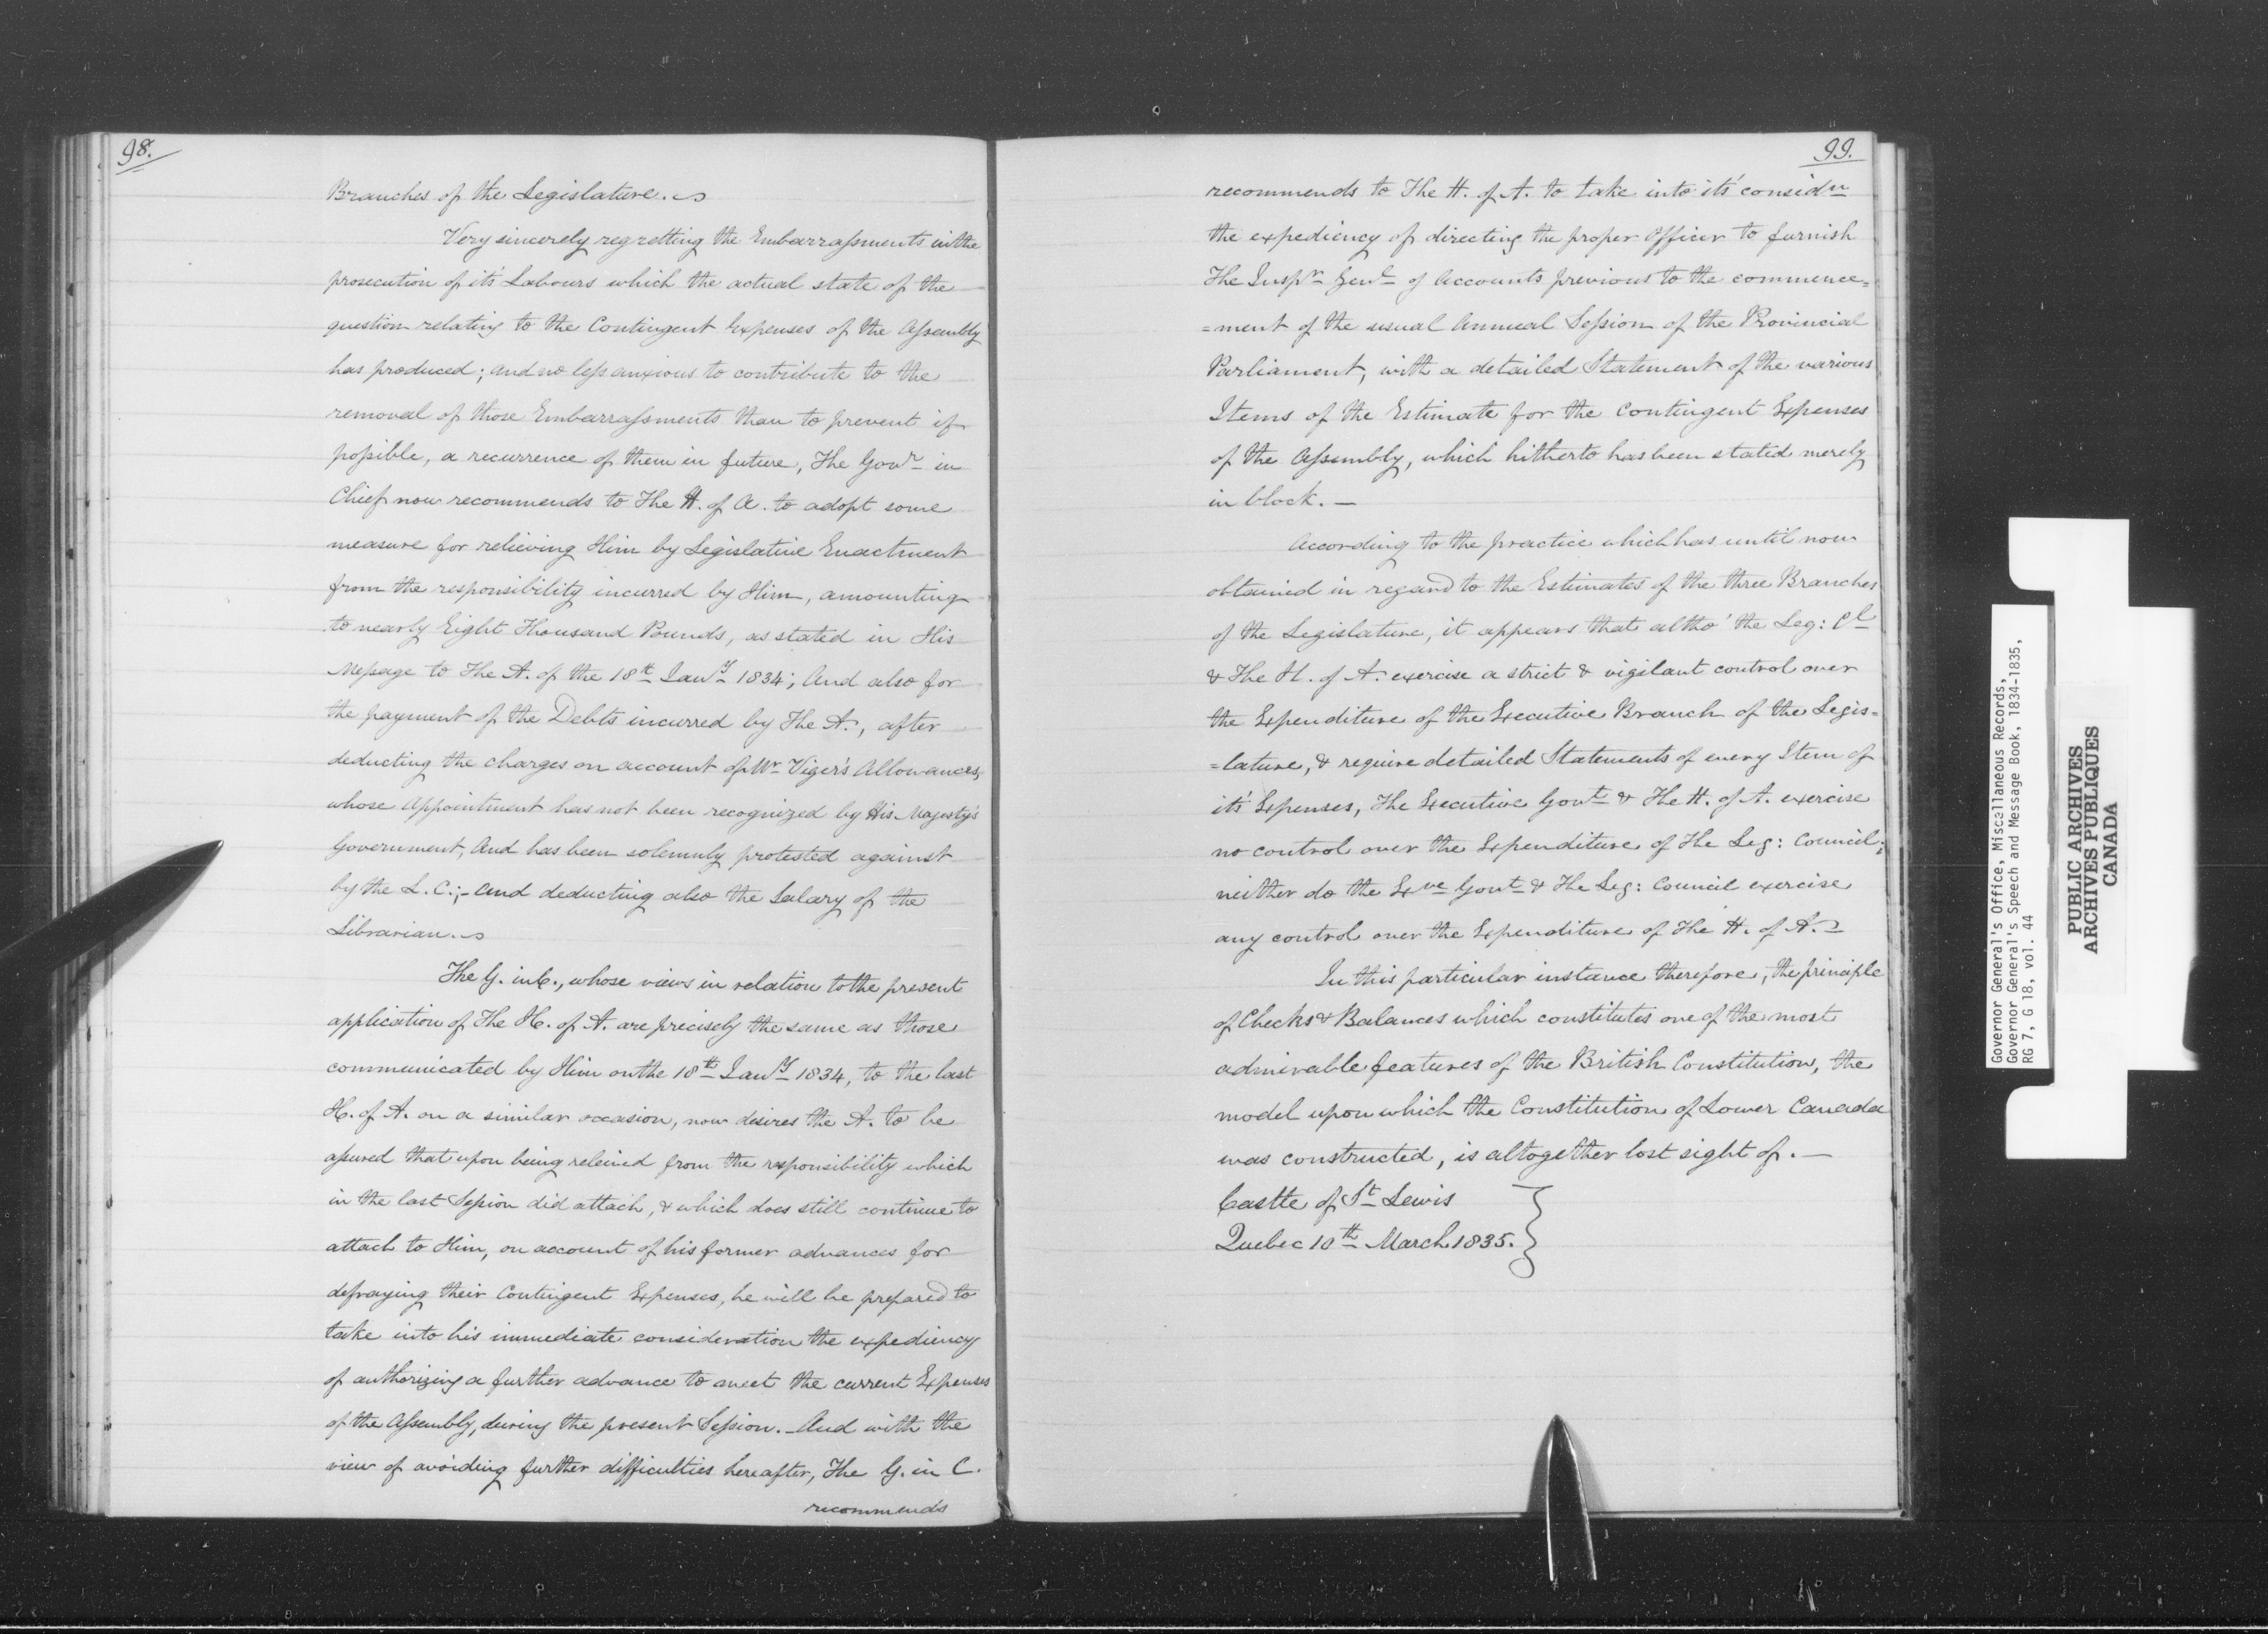 98.
Branches of the Legislature.
Very sincerely regretting the Embarrassments in the
prosecution of it's Labours which the actual state of the
question relating to the Contingent Expenses of the Assembly
has produced; and no less anxious to contribute to the
removal of those Embarrassments than to prevent if
possible, a recurrence of them in future, The Govr in
Chief now recommends to The H. of A. to adopt some
measure for relieving Him by Legislative Enactment
from the responsibility incurred by Him, amounting
to nearly Eight Thousand Pounds, as stated in His
Message to The A. of the 18th Jany 1834; And also for
the payment of the Debts incurred by The A., after
deducting the charges on account of Mr Viger's Allowances,
whose Appointment has not been recognized by His Majesty's
Government, And has been solemnly protested against
by the L. C.;- And deducting also the Salary of the
Librarian.
The G. in C., whose views in relation to the present
application of The H. of A. are precisely the same as those
communicated by Him on the 18th Jany 1834, to the last
H. of A. on a similar occasion, now desires the A. to be
assured that upon being releived from the responsibility which
in the last Session did attach, & which does still continue to
attach to Him, on account of his former advances for
defraying their Contingent Expenses, he will be prepared to
take into his immediate consideration the expediency
of authorizing a further advance to meet the current Expenses
of the Assembly, during the present Session. - And with the
view of avoiding further difficulties hereafter, The G. in C.
recommends
99.
recommends to The H. of A. to take into it's considn
the expediency of directing the proper Officer to furnish
The Inspr Genl of Accounts previous to the commence=
=ment of the usual Annual Session of the Provincial
Parliament, with a detailed Statement of the various
Items of the Estimate for the Contingent Expenses
of the Assembly, which hitherto has been stated merely
in block. —
According to the practice which has until now
obtained in regard to the Estimates of the three Branches
of the Legislature, it appears that altho' the Leg: Cl
& The H. of A. exercise a strict & vigilant control over
the Expenditure of the Executive Branch of the Legis=
=lature, & require detailed Statements of every Item of
it's Expenses, The Executive Govt & The H. of A. exercise
no control over the Expenditure of The Leg: Council;
neither do the Exve Govt & The Leg: Council exercise
any control over the Expenditure of The H. of A.
In this particular instance therefore, the principle
of Checks & Balances which constitutes one of the most
admirable features of the British Constitution, the
model upon which the Constitution of Lower Canada
was constructed, is altogether lost sight of. —
Castle of St Lewis
Quebec 10th March 1835.
Governor General's Office, Miscellaneous Records,
Governor General's Speech and Message Book, 1834-1835.
RG 7, G 18, vol. 44
PUBLIC ARCHIVES
ARCHIVES PUBLIQUES
CANADA